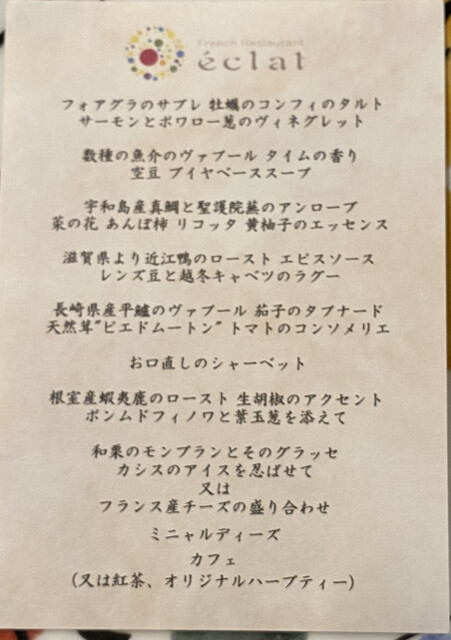 French Restaurant
éclat
フォアグラのサブレ 牡蠣のコンフィのタルト
サーモンとポワロー葱のヴィネグレット
数種の魚介のヴァプール タイムの香り
空豆 ブイヤベーススープ
宇和島産真鯛と聖護院蕪のアンローブ
菜の花 あんぽ柿 リコッタ 黄柚子のエッセンス
滋賀県より近江鴨のロースト エピスソース
レンズ豆と越冬キャベツのラグー
長崎県産平鱸のヴァプール 茄子のタプナード
天然茸"ピエドムートン" トマトのコンソメリエ
お口直しのシャーベット
根室産蝦夷鹿のロースト 生胡椒のアクセント
ポンムドフィノワと葉玉葱を添えて
和栗のモンブランとそのグラッセ
カシスのアイスを忍ばせて
又は
フランス産チーズの盛り合わせ
ミニャルディーズ
カフェ
(又は紅茶、オリジナルハーブティー)